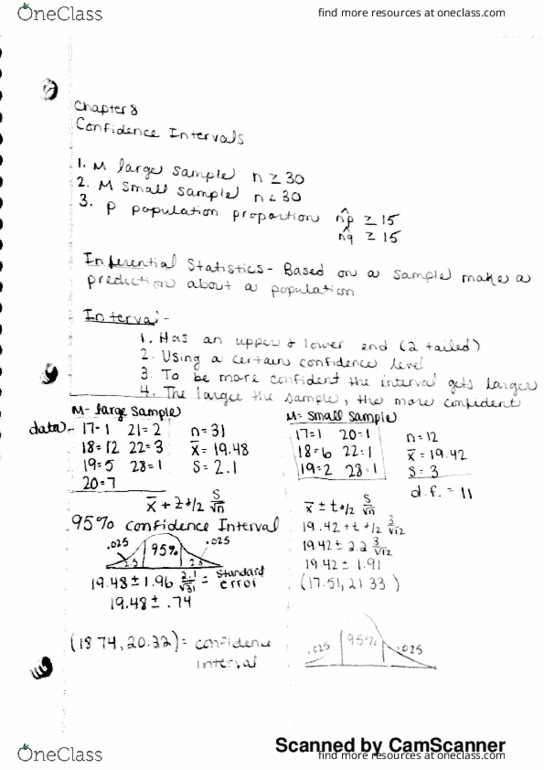 OneClass
find more resources at oneclass.com
Chapter 8
Confidence Intervals
1. M large sample n ≥ 30
2. M small sample n < 30
3. p population proportion np̂ ≥ 15
nq̂ ≥ 15
Inferential Statistics - Based on a sample make a
prediction about a population
Interval -
1. Has an upper & lower end (2 tailed)
2. Using a certain confidence level
3. To be more confident the interval gets larger
4. The larger the sample, the more confident
M- large sample
data - 17=1 21=2 n=31
18=12 22=3 x̅=19.48
19=5 23=1 S=2.1
20=7
x̅ ± z α/2 S/√n
95% confidence Interval
.025 95% .025
19.48 ± 1.96 2.1/√31 = standard error
19.48 ± .74
(18.74, 20.22) = confidence
interval
M= small sample
17=1 20=1 n=12
18=6 22=1 x̅=19.42
19=2 28=1 S=3
d.f. = 11
x̅ ± t α/2 S/√n
19.42 ± t α/2 3/√12
19.42 ± 2.2 3/√12
19.42 ± 1.91
(17.51, 21.33)
.025 95% .025
Scanned by CamScanner
OneClass
find more resources at oneclass.com